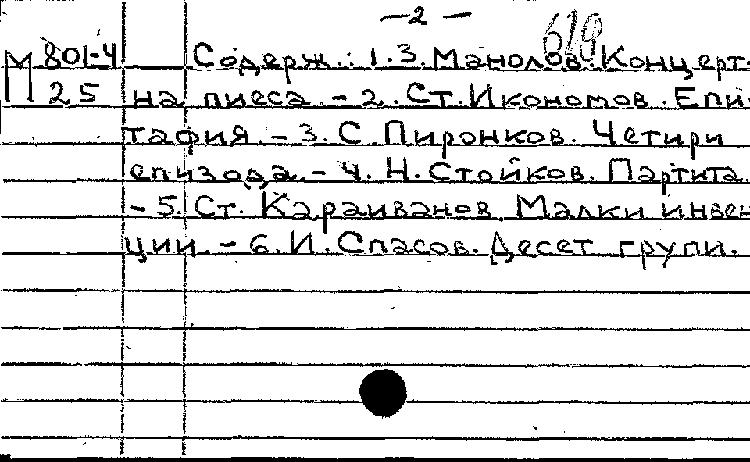 — 2 —
619
М 801-4 Содерж.: 1. З. Манолов. Концерт-
П 25 на пиеса. – 2. Ст. Икономов. Епи-
тафия. – 3. С. Пиронков. Четири
епизода. – 4. Н. Стойков. Партита.
– 5. Ст. Караиванов. Малки инвен-
ции. – 6. И. Спасов. Десет групи.